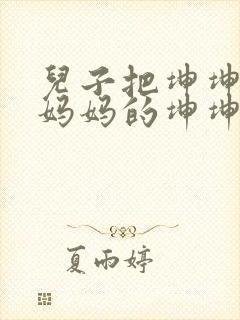 兒子把坤坤
妈妈的坤坤
夏雨婷